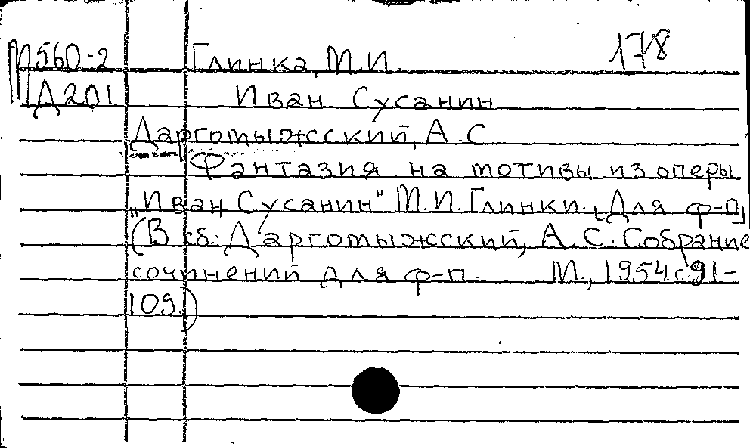 М560-2 Глинка, М.И. 178
Д201 Иван Сусанин
Даргомыжсский, А.С
Фантазия на мотивы из оперы
„Иван Сусанин" М.И. Глинки. [Для ф-п]
(В сб.: Даргомыжсский, А.С. Собрание
сочинений для ф-п. М., 1954 с. 91-
109.)